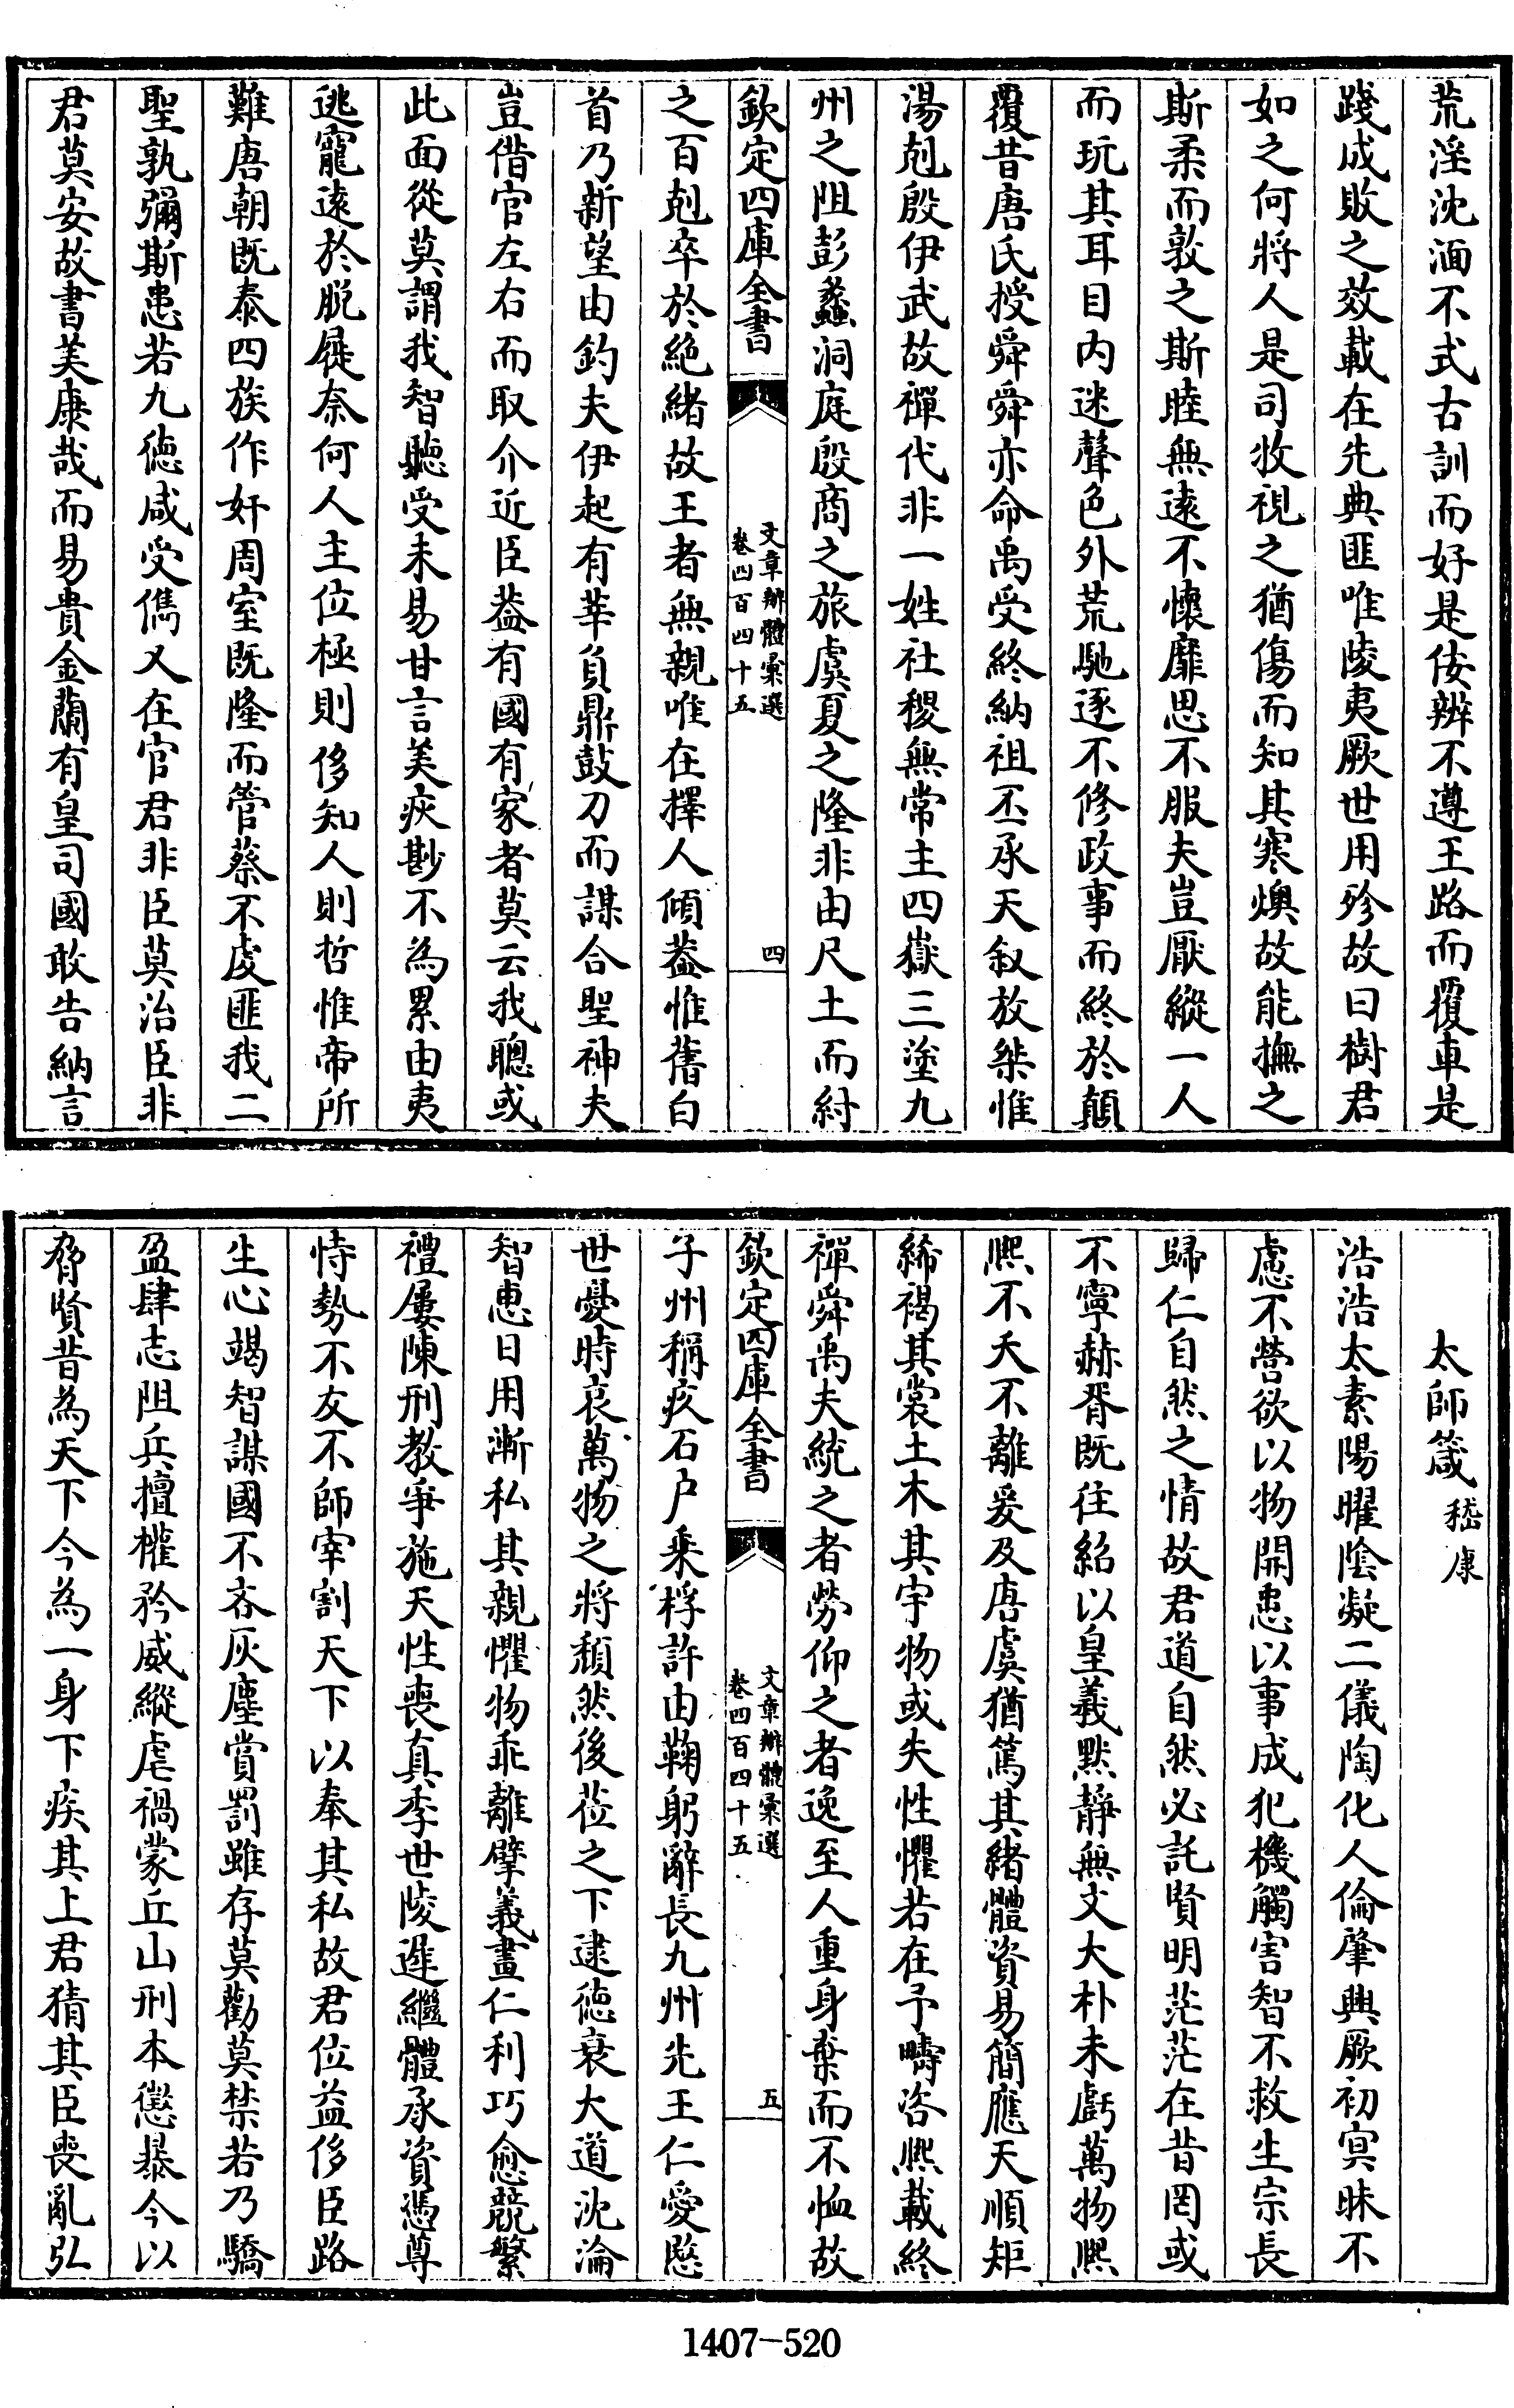 荒淫沈湎不式古訓而好是佞辨不遵王路而覆車是
踐成敗之效載在先典匪唯陵夷厥世用殄故曰樹君
如之何將人是司牧視之猶傷而知其寒燠故能撫之
斯柔而敦之斯睦無遠不懷靡思不服夫豈厭縱一人
而玩其耳目内迷聲色外荒馳逐不修政事而終於顛
覆昔唐氏授舜舜亦命禹受終納祖丕承天叙放桀惟
湯剋殷伊武故禪代非一姓社稷無常主四嶽三塗九
州之阻彭蠡洞庭殷商之旅虞夏之隆非由尺土而紂
欽定四庫全書
文章辨體彙選
卷四百四十五
四
之百剋卒於絶緒故王者無親唯在擇人傾蓋惟舊白
首乃新望由釣夫伊起有莘負鼎鼓刀而謀合聖神夫
豈借官左右而取介近臣葢有國有家者莫云我聰或
此面從莫謂我智聽受未易甘言美疾尠不為累由夷
逃寵遠於脱屣奈何人主位極則侈知人則哲惟帝所
難唐朝既泰四族作奸周室既隆而管蔡不虔匪我二
聖孰彌斯患若九徳咸受儁乂在官君非臣莫治臣非
君莫安故書美康哉而易貴金蘭有皇司國敢告納言
太師箴嵇康
浩浩太素陽曜陰凝二儀陶化人倫肇興厥初寞昧不
慮不營欲以物開患以事成犯機觸害智不救生宗長
歸仁自然之情故君道自然必託賢明茫茫在昔罔或
不寧赫胥既往紹以皇羲默靜無文大朴未虧萬物熙
熙不夭不離爰及唐虞猶篤其緒體資易簡應天順矩
絺褐其裳土木其宇物或失性懼若在予疇咨熙載終
禪舜禹夫統之者勞仰之者逸至人重身棄而不恤故
欽定四庫全書
文章辨體彙選
卷四百四十五
五
子州稱疢石户乗桴許由鞠躬辭長九州先王仁愛愍
世憂時哀萬物之將頽然後莅之下逮徳衰大道沈淪
智惠日用漸私其親懼物乖離擘義畫仁利巧愈競繁
禮屢陳刑教爭施天性喪真季世陵遲繼體承資憑尊
恃勢不友不師宰割天下以奉其私故君位益侈臣路
生心竭智謀國不吝灰塵賞罰雖存莫勸莫禁若乃驕
盈肆志阻兵擅權矜威縱虐禍蒙丘山刑本懲暴今以
脅賢昔為天下今為一身下疾其上君猜其臣喪亂弘
1407-520